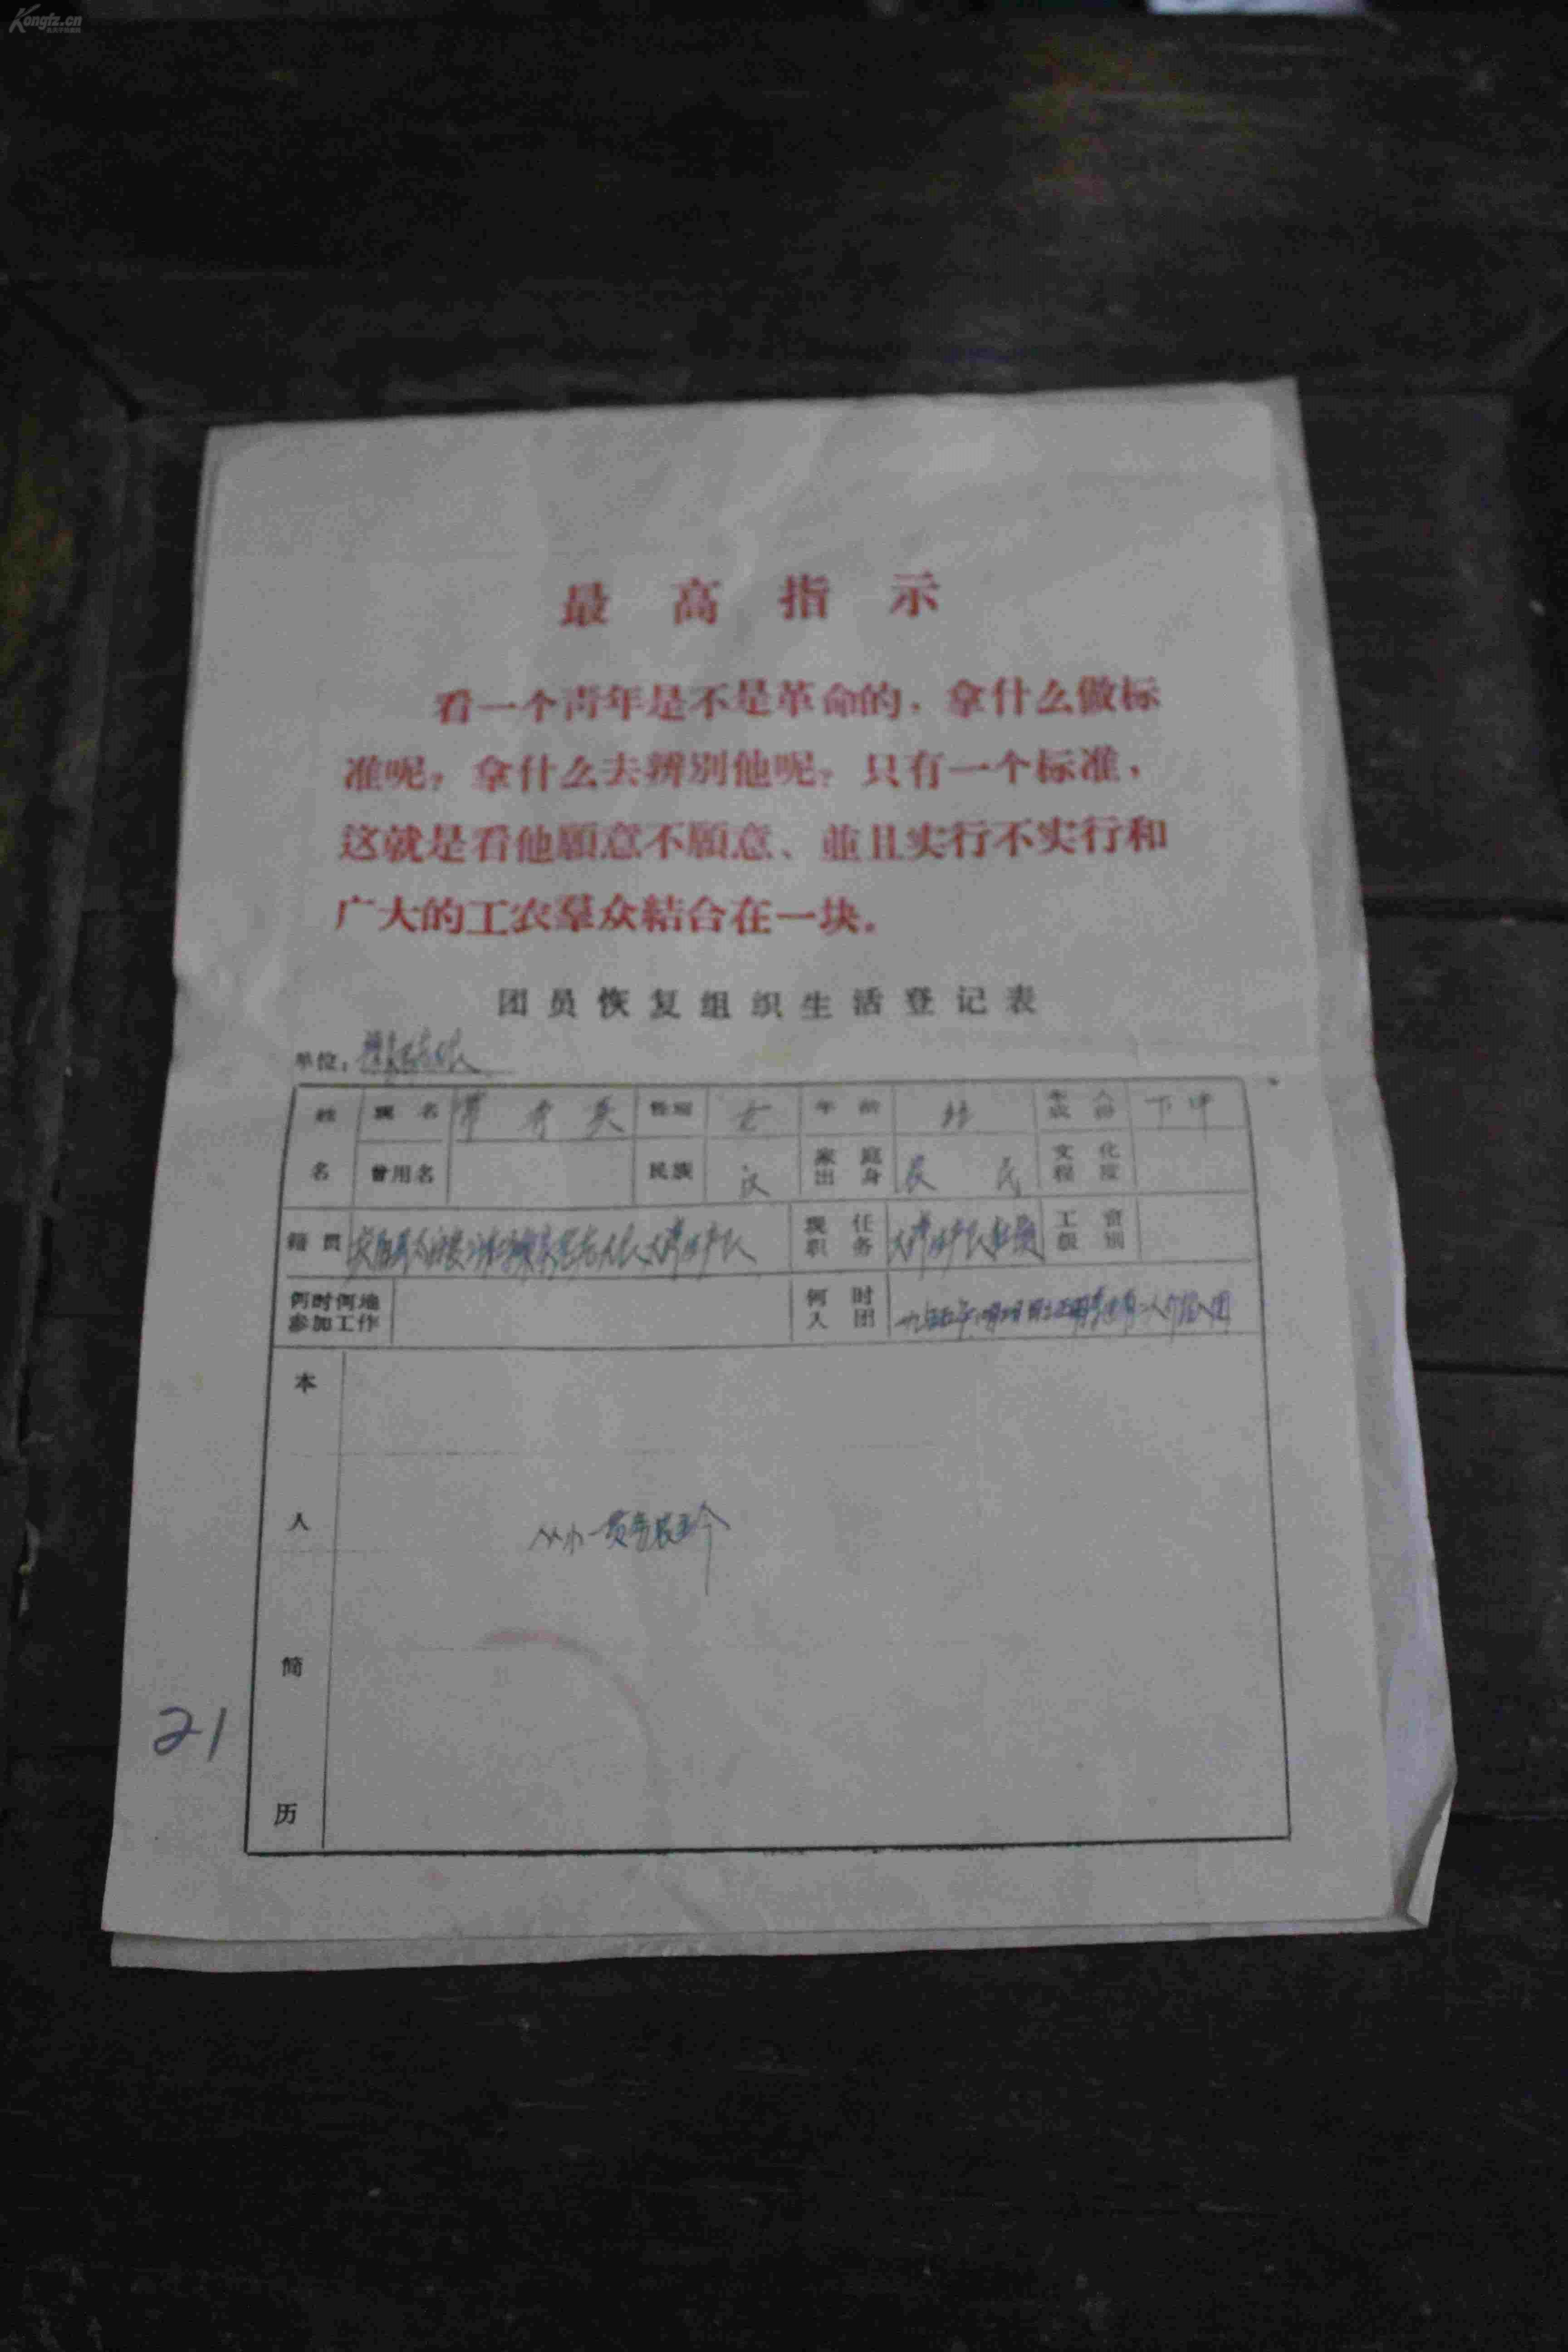 Kongfz.cn
最高指示
看一个青年是不是革命的，拿什么做标
准呢？拿什么去辨别他呢？只有一个标准，
这就是看他願意不願意、並且实行不实行和
广大的工农羣众結合在一块。
团员恢复组织生活登记表
单位：
姓名 现名 秀英 性别 女 年龄 本人成份 下中
曾用名 民族 汉 家庭出身 农民 文化程度
籍贯 现任职务 大 生产队社员 工资级别
何时何地参加工作 何时入团
本人简历
从小一贯务农至今
21